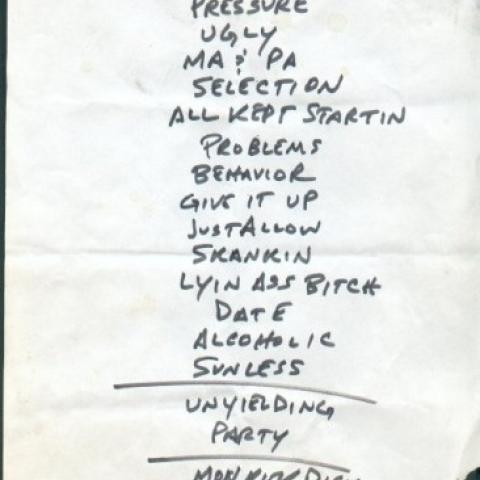 PRESSURE
UGLY
MA & PA
SELECTION
ALL KEPT STARTIN
PROBLEMS
BEHAVIOR
GIVE IT UP
JUST ALLOW
SKANKIN
LYIN ASS BITCH
DATE
ALCOHOLIC
SUNLESS
UNYIELDING
PARTY